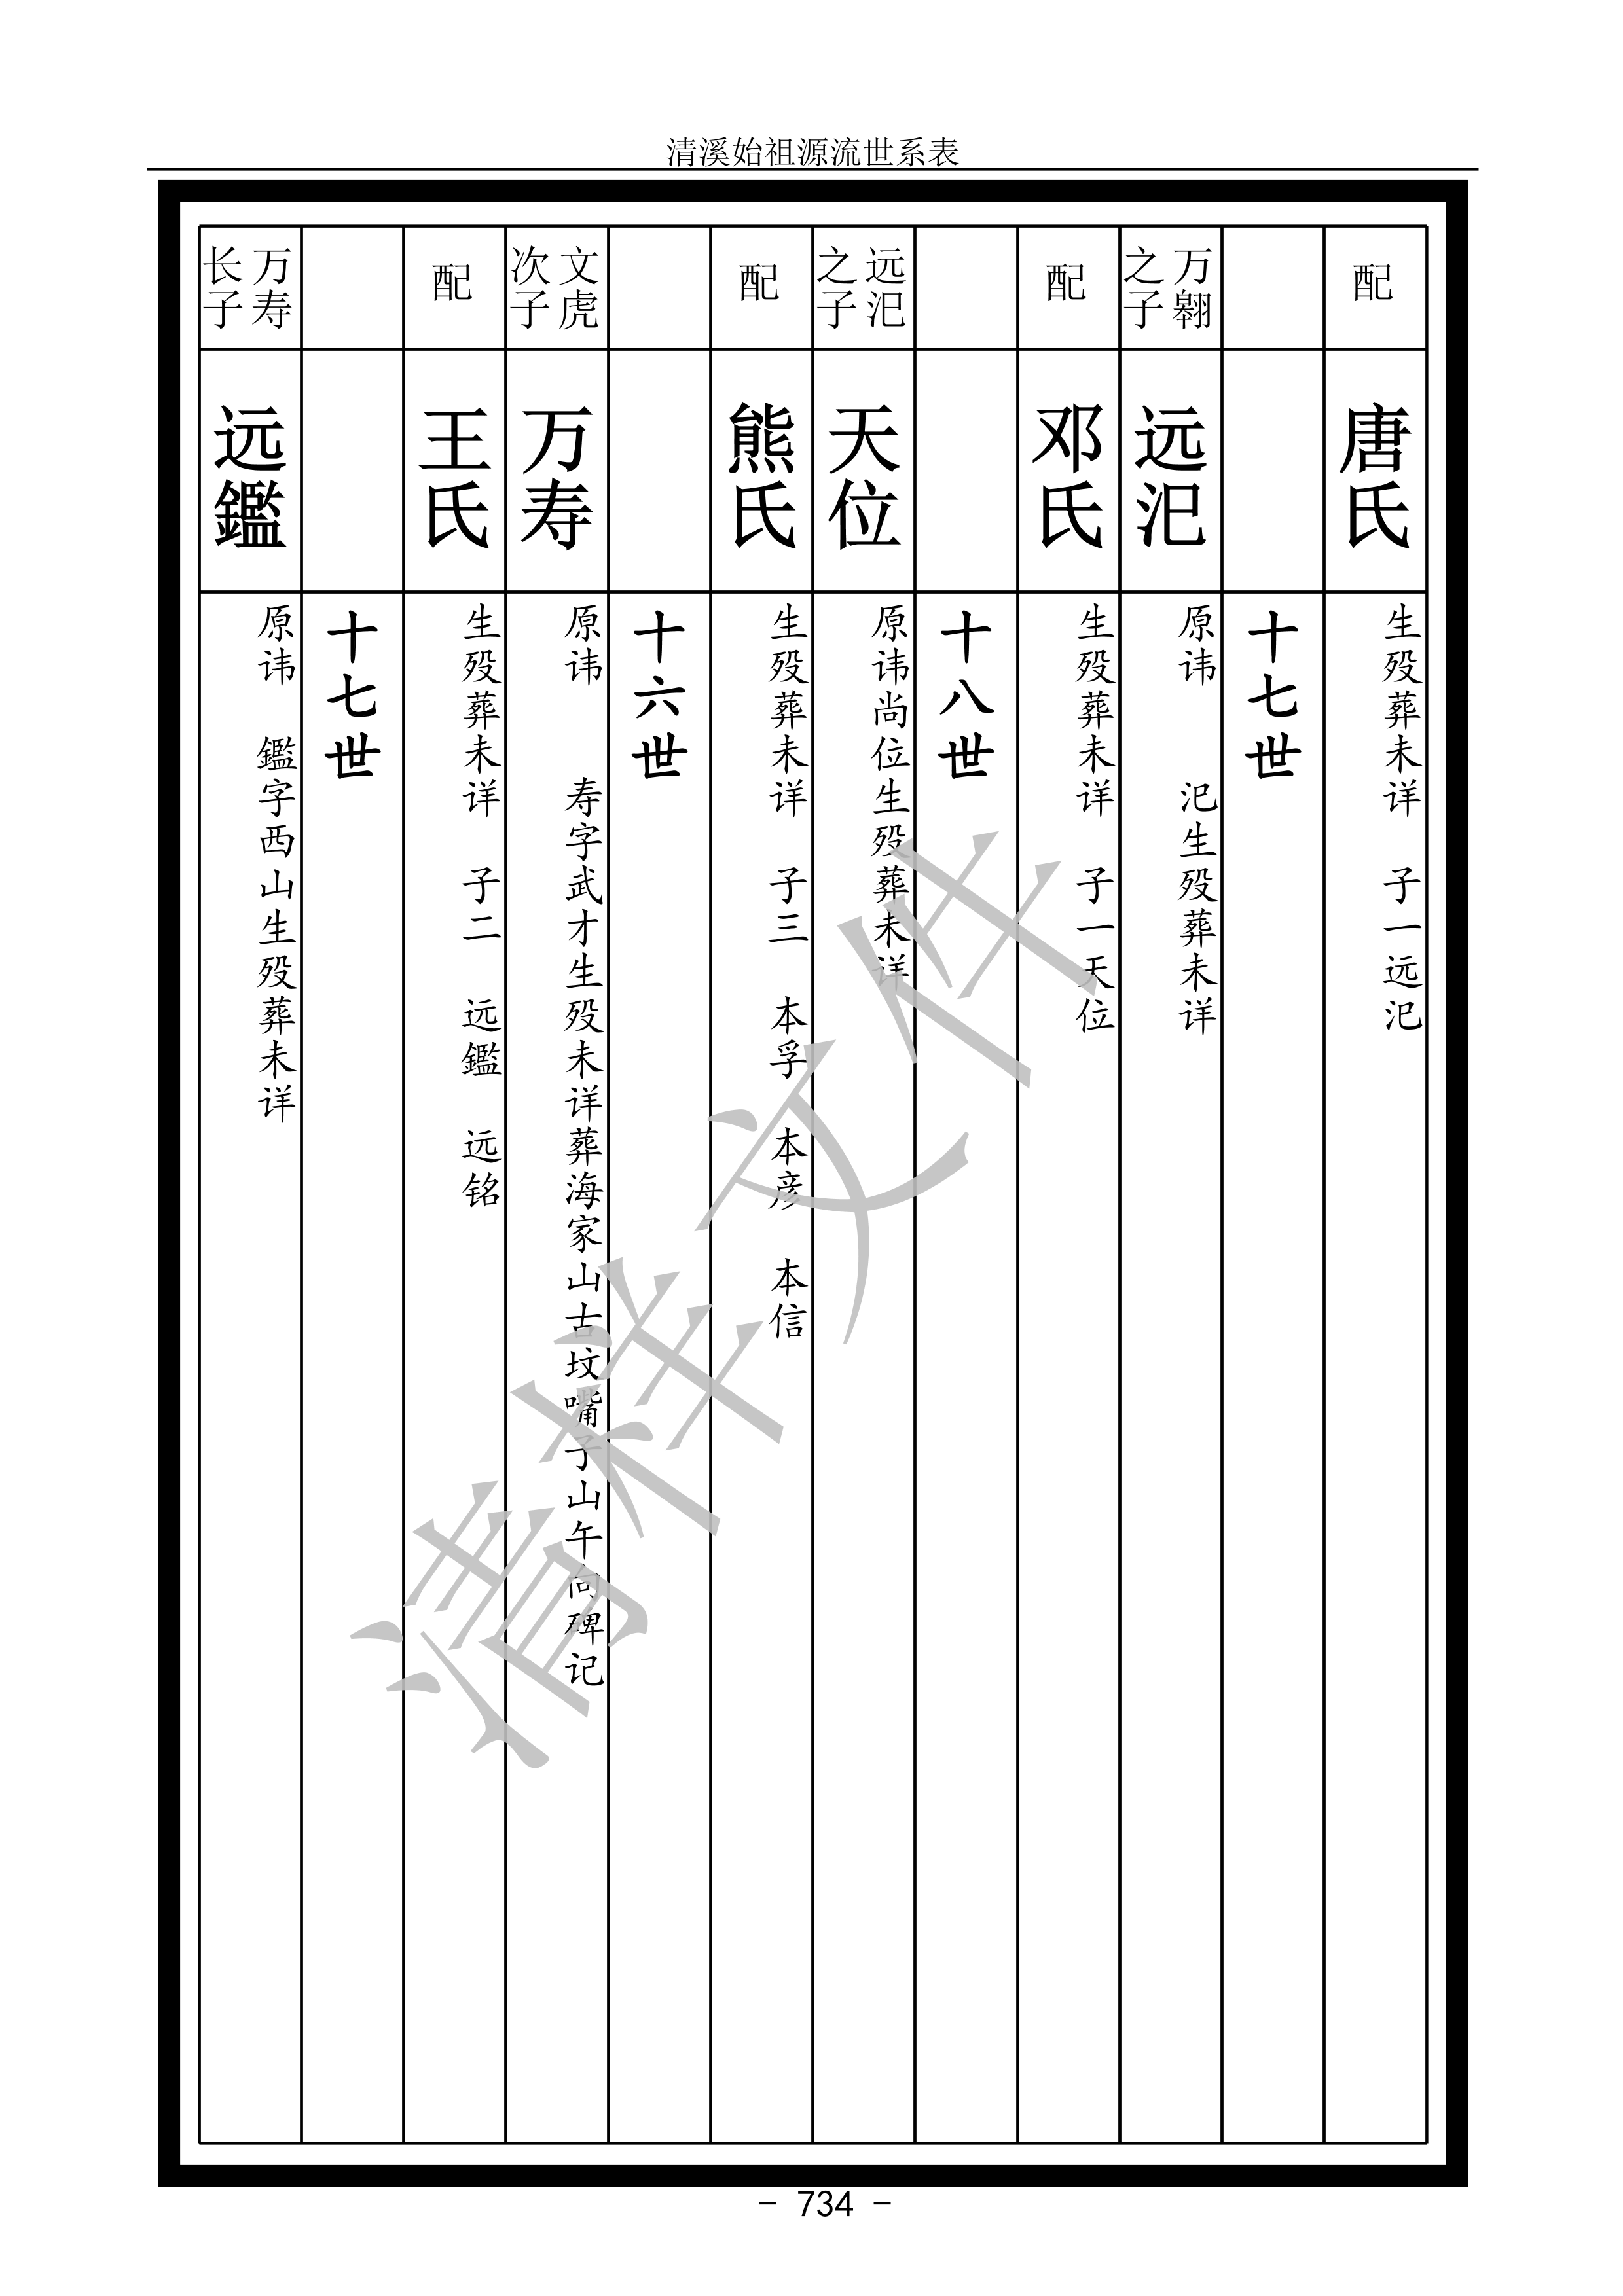 清溪始祖源流世系表
配
唐氏
生殁葬未详　子一远汜
十七世
万翱
之子
远汜
原讳　　汜生殁葬未详
配
邓氏
生殁葬未详　子一天位
十八世
远汜
之子
天位
原讳尚位生殁葬未详
配
熊氏
生殁葬未详　子三　本孚　本彦　本信
十六世
文虎
次子
万寿
原讳　　寿字武才生殁未详葬海家山古坟嘴子山午向碑记
配
王氏
生殁葬未详　子二　远鑑　远铭
十七世
万寿
长子
远鑑
原讳　鑑字西山生殁葬未详
清样文件
- 734 -